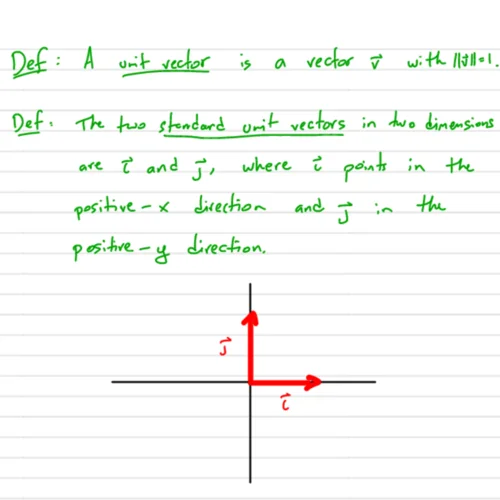 Def: A unit vector is a vector v⃗ with ||v⃗||=1.
Def: The two standard unit vectors in two dimensions
are i⃗ and j⃗, where i⃗ points in the
positive-x direction and j⃗ in the
positive-y direction.
j⃗
i⃗